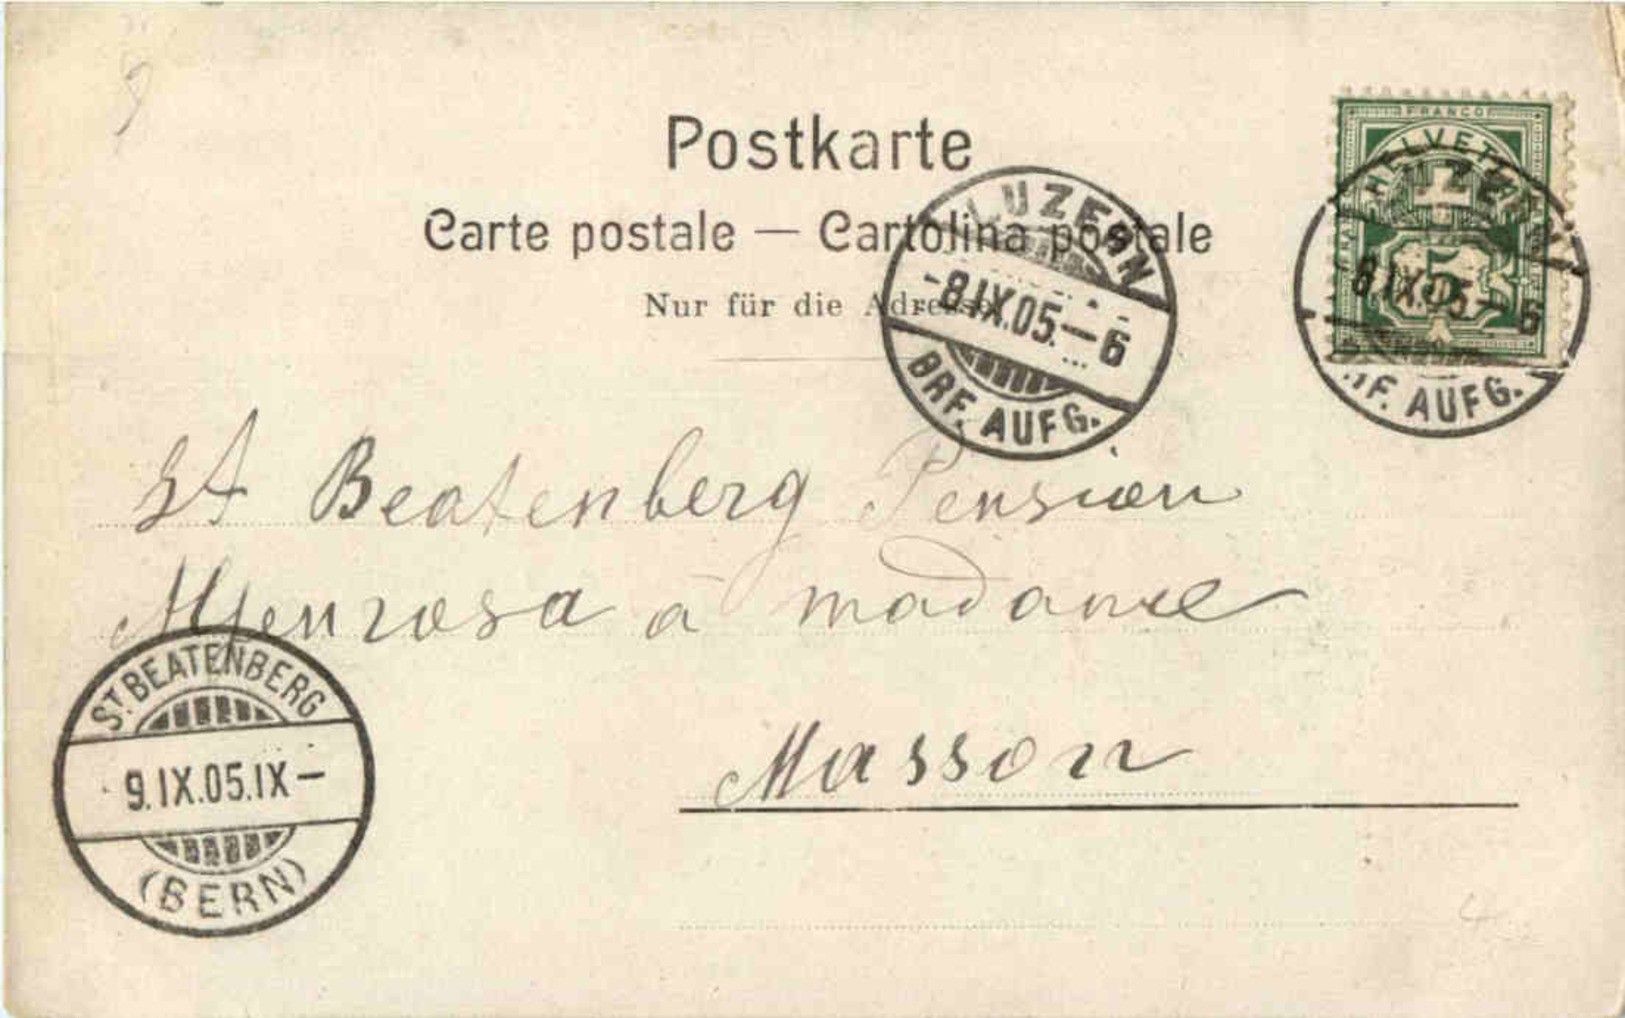 Postkarte
Carte postale — Cartolina postale
Nur für die Adresse
FRANCO
HELVETIA
5
LUZERN
-8.IX.05.–6
BRF. AUFG.
LUZERN
8.IX.05.–6
BRF. AUFG.
St Beatenberg Pension
Alpenrosa à madame
Masson
ST. BEATENBERG
9.IX.05.IX–
(BERN)
4